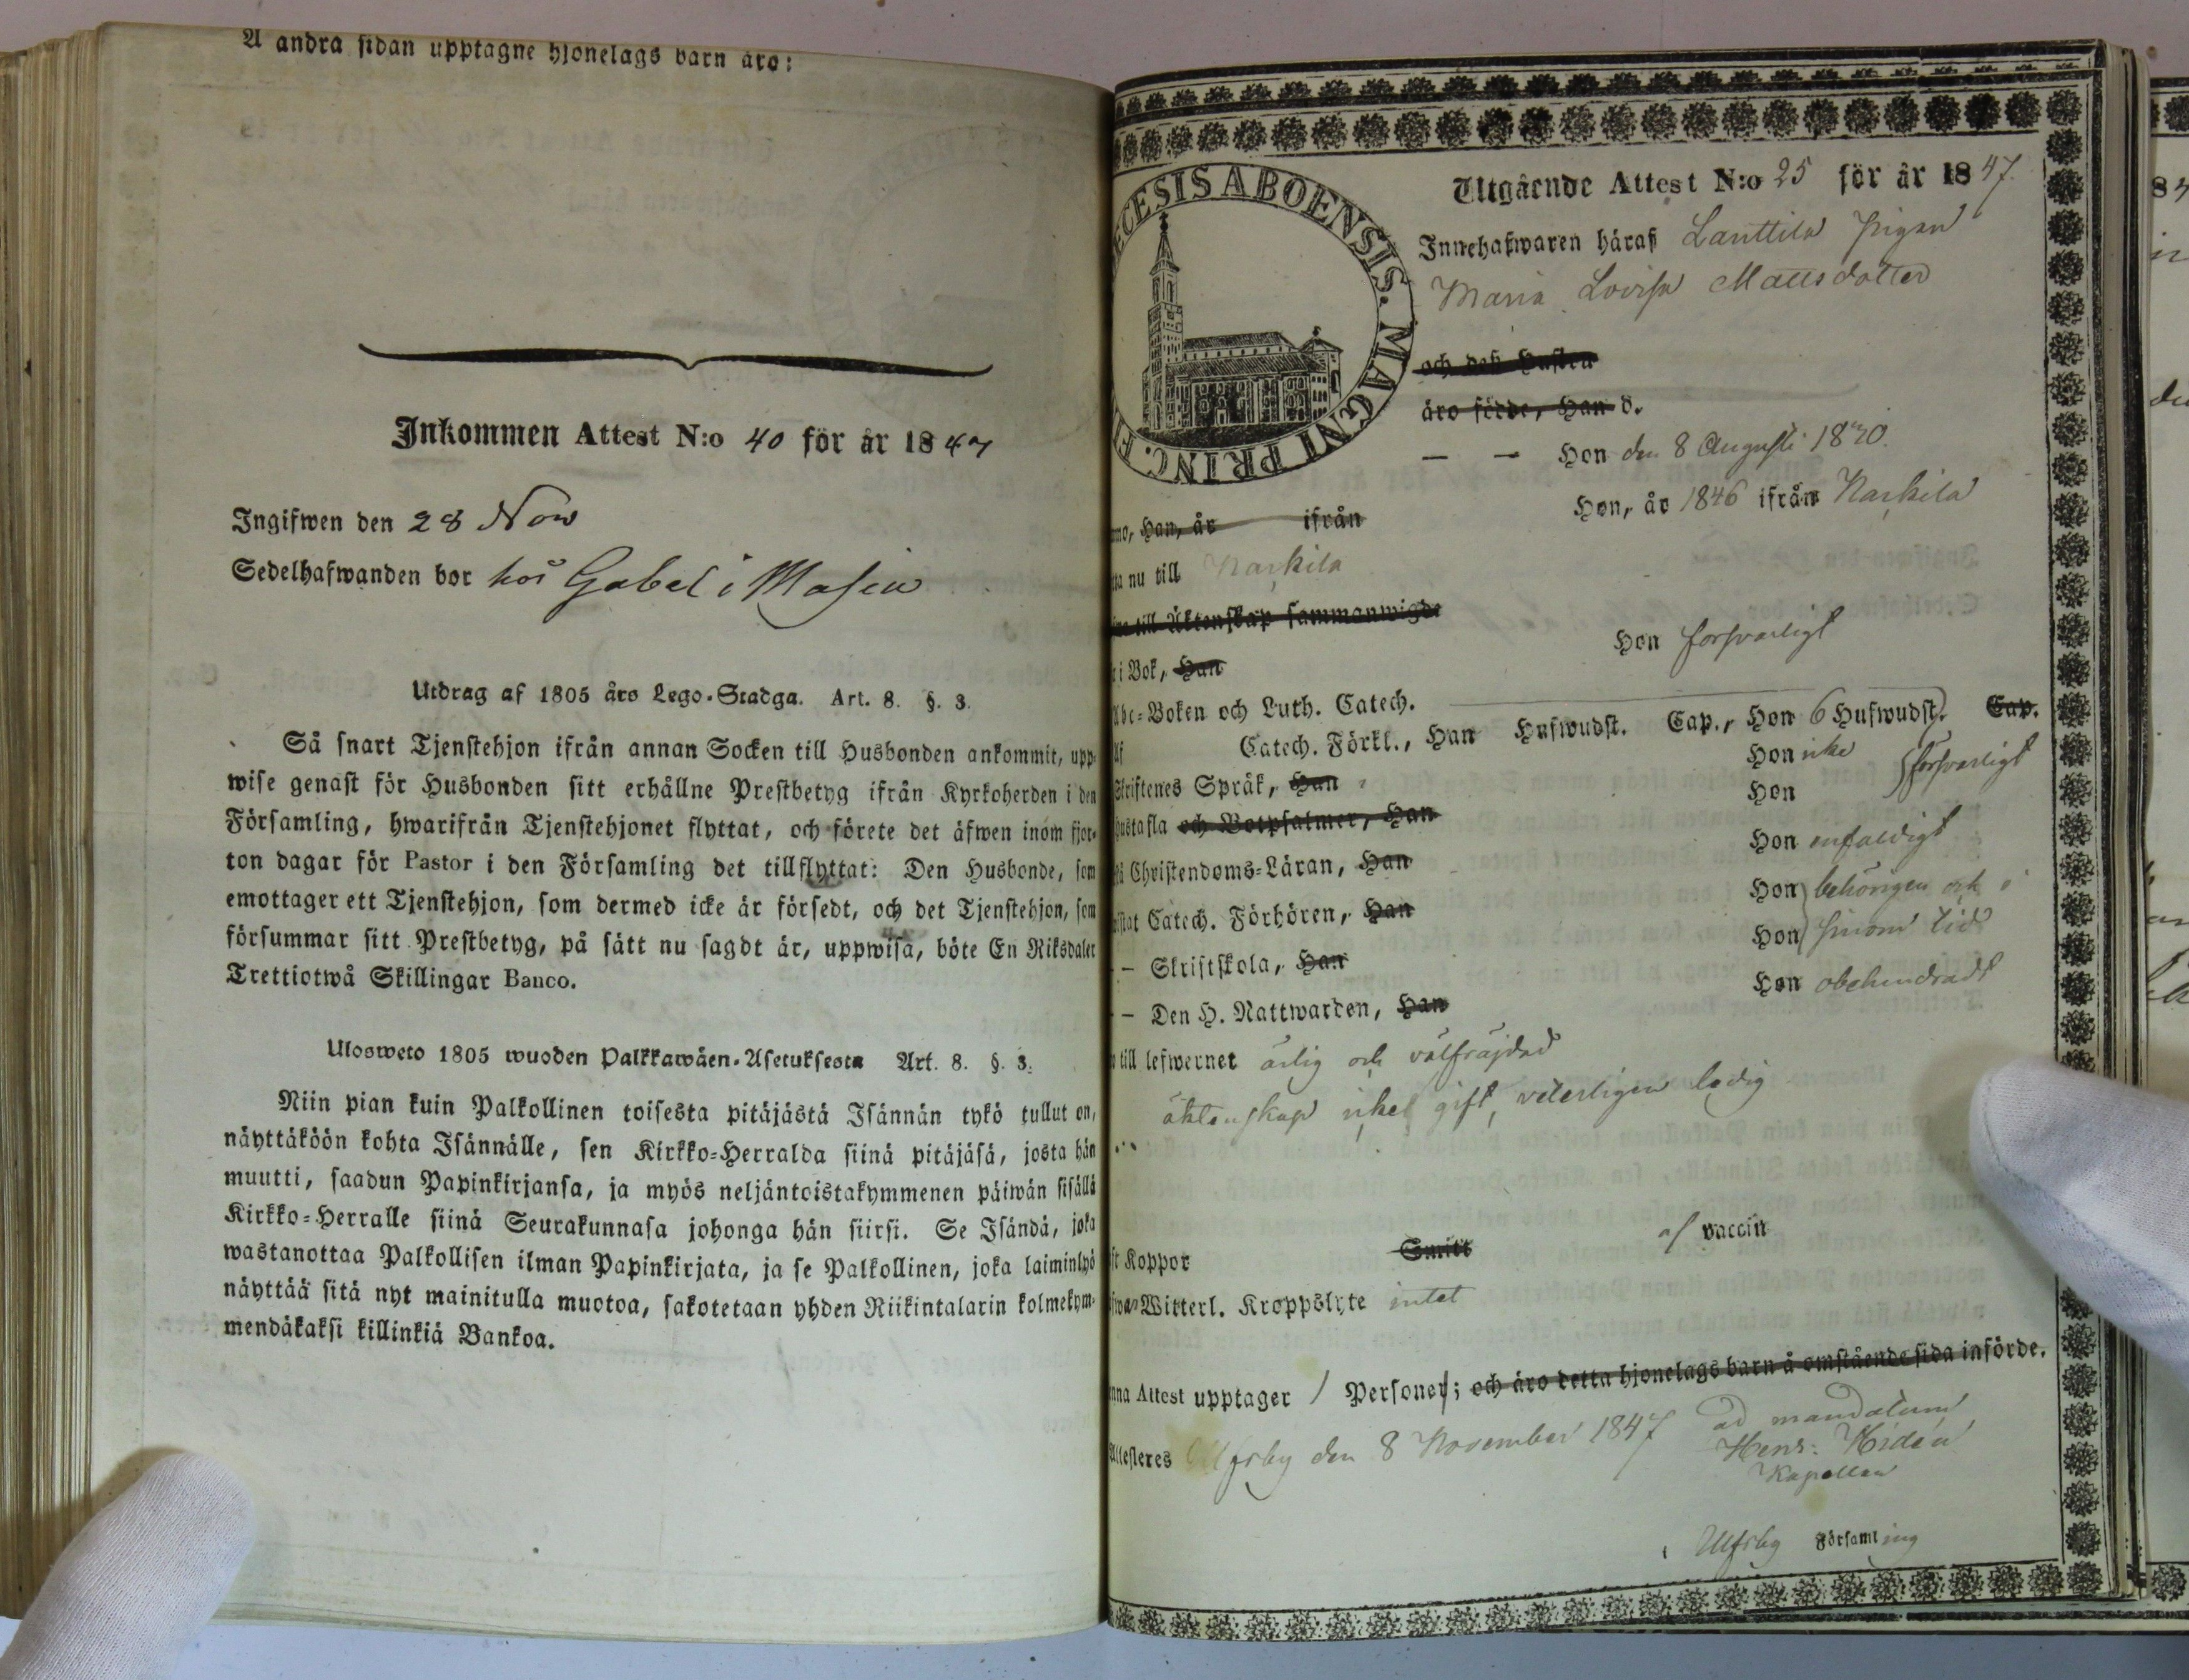 Å andra sidan upptagne hjonelags barn äro:
Inkommen Attest N:o 40 för år 1847
Ingifwen den 28 Nov
Sedelhafwanden bor hos Gabel i Masia
Utdrag af 1805 års Lego-Stadga. Art. 8. §. 3.
Så snart Tjenstehjon ifrån annan Socken till Husbonden ankommit, upp-
wise genast för Husbonden sitt erhållne Prestbetyg ifrån Kyrkoherden i den
Församling, hwarifrån Tjenstehjonet flyttat, och förete det äfwen inom fjor-
ton dagar för Pastor i den Församling det tillflyttat: Den Husbonde, som
emottager ett Tjenstehjon, som dermed icke är försedt, och det Tjenstehjon, som
försummar sitt Prestbetyg, på sätt nu sagdt är, uppwisa, böte En Riksdaler
Trettiotwå Skillingar Banco.
Ulosweto 1805 wuoden Palkkawäen-Asetuksesta Art. 8. §. 3.
Niin pian kuin Palkollinen toisesta pitäjästä Isännän tykö tullut on,
näyttäköön kohta Isännälle, sen Kirkko-Herralda siinä pitäjäsä, josta hän
muutti, saadun Papinkirjansa, ja myös neljäntoistakymmenen päiwän sisällä
Kirkko-Herralle siinä Seurakunnasa johonga hän siirsi. Se Isändä, joka
wastanottaa Palkollisen ilman Papinkirjata, ja se Palkollinen, joka laiminlyö
näyttää sitä nyt mainitulla muotoa, sakotetaan yhden Riikintalarin kolmekym-
mendäkaksi killinkiä Bankoa.
ECESIS ABOENSIS. MAGNI PRINC. F
Utgående Attest N:o 25 för år 1847.
Innehafwaren häraf Lanttila pigan
Maria Lovisa Mattsdotter
och dess Hustru
äro födde, Han d.
— — Hon den 8 Augusti 1820.
Han, år ifrån Hon, år 1846 ifrån Narkila
nu till Narkila
till Äktenskap sammanwigde
i Bok, Han Hon försvarligt
Abc-Boken och Luth. Catech.
Catech. Förkl., Han Hufwudst. Cap., Hon 6 Hufwudst. Cap.
Skriftenes Språk, Han Hon icke försvarligt
Hustafla och Botpsalmer, Han Hon
Christendoms-Läran, Han Hon enfaldigt
Catech. Förhören, Han Hon behörigen och i
— Skriftskola, Han Hon sinom tid
— Den H. Nattwarden, Han Hon obehindradt
till lefwernet ärlig och välfräjdad
äktenskap icke gift, veterligen ledig
Koppor Smitt af vaccin
Witterl. Kroppslyte intet
Attest upptager 1 Personer; och äro detta hjonelags barn å omstående sida införde.
Attesteres Ulfsby den 8 November 1847 ad mandatum
Henr: Hidén
Kapellan
i Ulfsby Församling